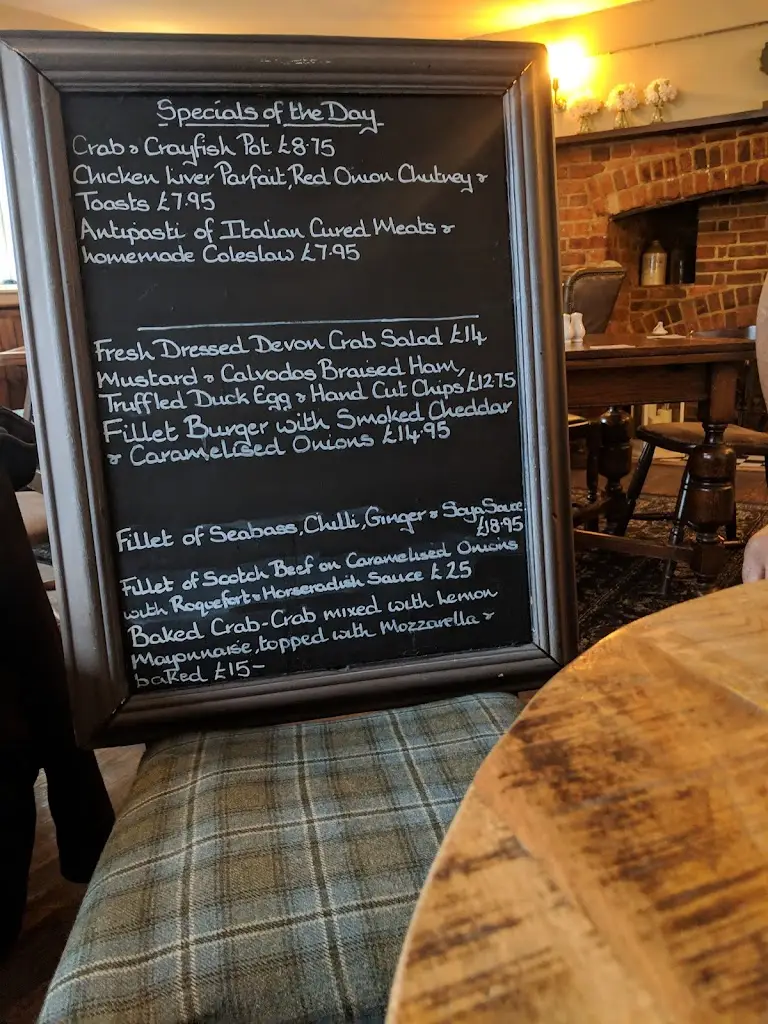 Specials of the Day
Crab & Crayfish Pot £8.75
Chicken Liver Parfait, Red Onion Chutney &
Toasts £7.95
Antipasti of Italian Cured Meats &
homemade Coleslaw £7.95
Fresh Dressed Devon Crab Salad £14
Mustard & Calvados Braised Ham,
Truffled Duck Egg & Hand Cut Chips £12.75
Fillet Burger with Smoked Cheddar
& Caramelised Onions £14.95
Fillet of Seabass, Chilli, Ginger & Soya Sauce
£18.95
Fillet of Scotch Beef on Caramelised Onions
with Roquefort & Horseradish Sauce £25
Baked Crab-Crab mixed with Lemon
Mayonnaise, topped with Mozzarella &
baked £15-